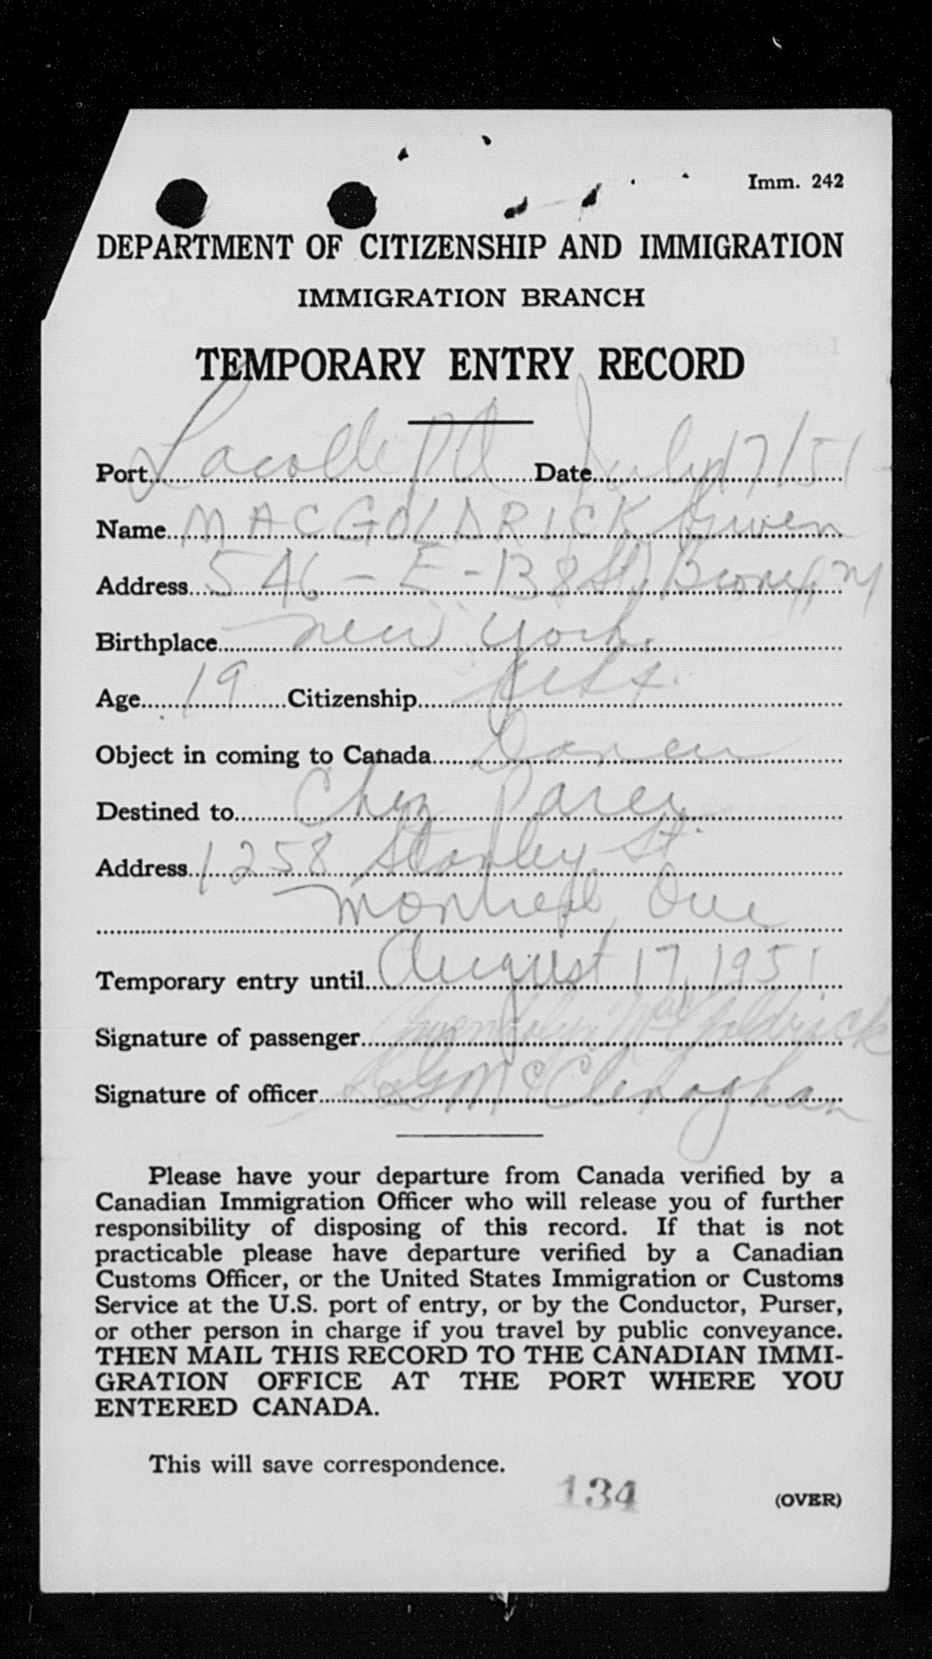 Imm. 242
DEPARTMENT OF CITIZENSHIP AND IMMIGRATION
IMMIGRATION BRANCH
TEMPORARY ENTRY RECORD
Port Lacolle P Q Date July 17/51
Name MACGOLDRICK Gwen
Address 546 - E - 138 St, Bronx, NY
Birthplace New York
Age 19 Citizenship USA.
Object in coming to Canada Dancer
Destined to Chez Paree
Address 1258 Stanley St.
Montreal, Que
Temporary entry until August 17, 1951
Signature of passenger Gwendolyn MacGoldrick
Signature of officer McClenaghan
Please have your departure from Canada verified by a
Canadian Immigration Officer who will release you of further
responsibility of disposing of this record. If that is not
practicable please have departure verified by a Canadian
Customs Officer, or the United States Immigration or Customs
Service at the U.S. port of entry, or by the Conductor, Purser,
or other person in charge if you travel by public conveyance.
THEN MAIL THIS RECORD TO THE CANADIAN IMMI-
GRATION OFFICE AT THE PORT WHERE YOU
ENTERED CANADA.
This will save correspondence.
134
(OVER)